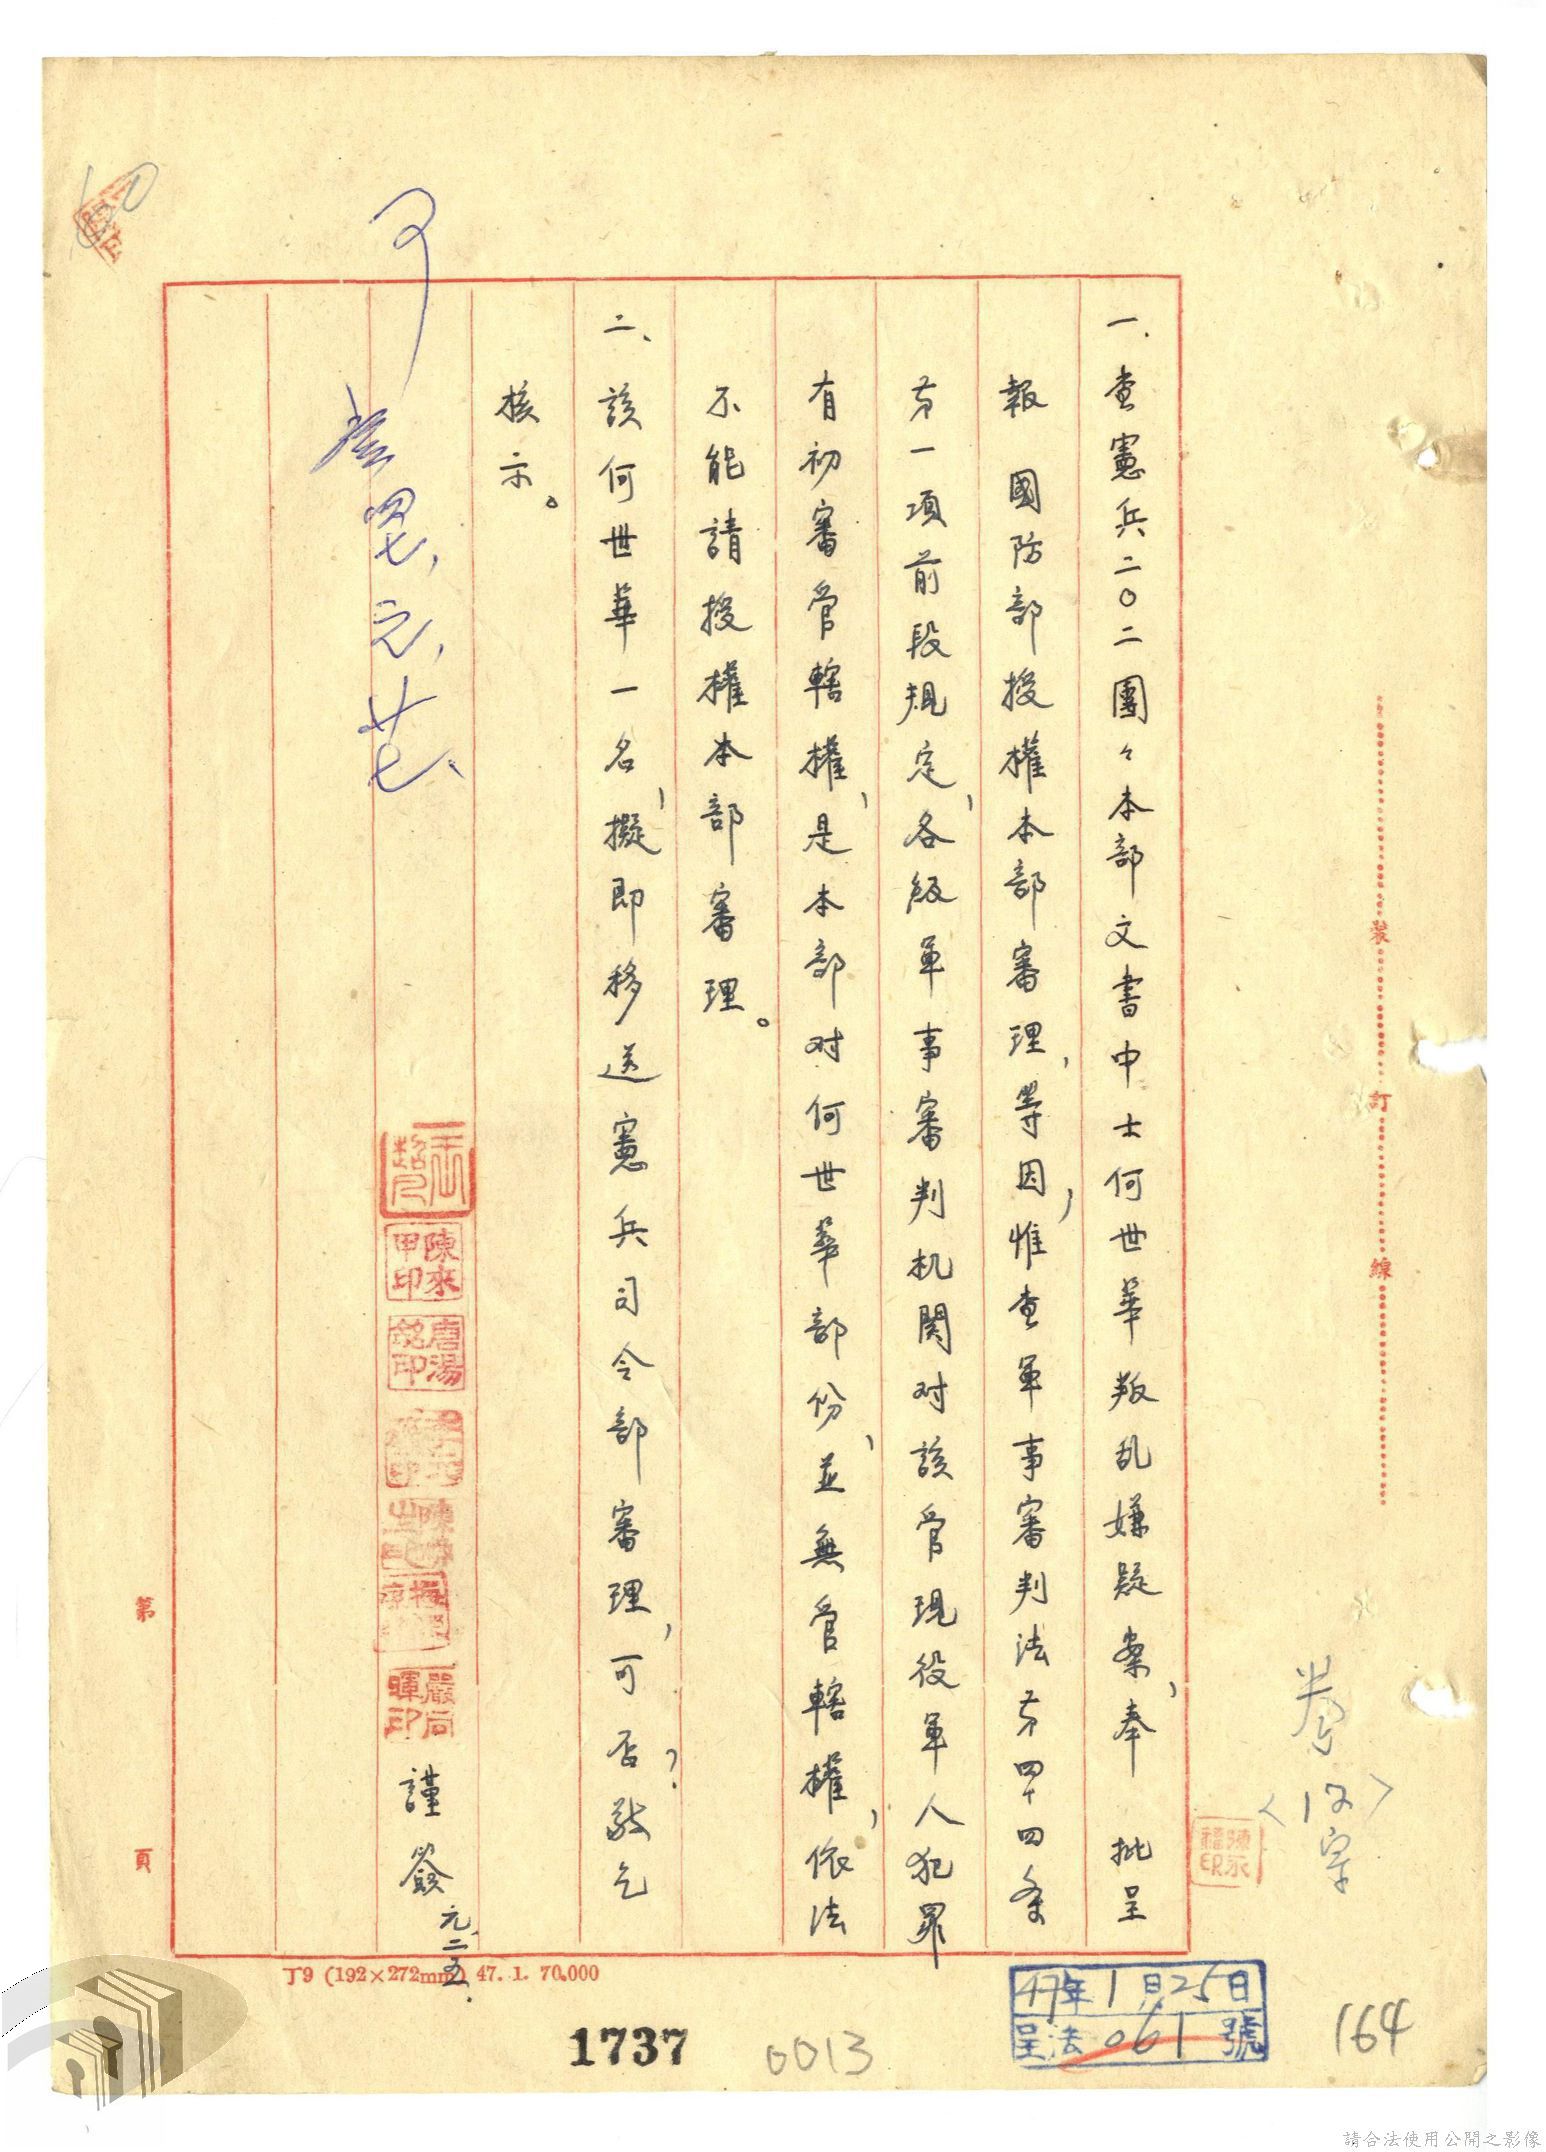 一、查憲兵二〇二團々本部文書中士何世華叛乱嫌疑案，奉　批呈
報　國防部授權本部審理，等因，惟查軍事審判法第四十四条
第一項前段規定，各級軍事審判机関对該管現役軍人犯罪
有初審管轄權，是本部对何世華部份，並無管轄權，依法
不能請授權本部審理。
二、該何世華一名，擬即移送憲兵司令部審理，可否？敬乞
核示。
謹簽
元、二五、
可
四七，元，廿七、
陳來
甲印
唐湯
銘印
嚴同
暉印
陳永
禮印
裝
訂
線
第
頁
丁9 (192×272mm) 47. 1. 70.000
47年1月25日
呈法061號
1737
0013
164
60
請合法使用公開之影像